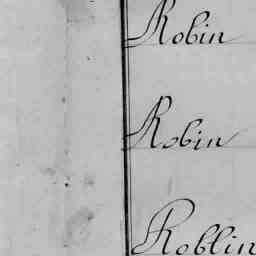 Robin
Robin
Roblin